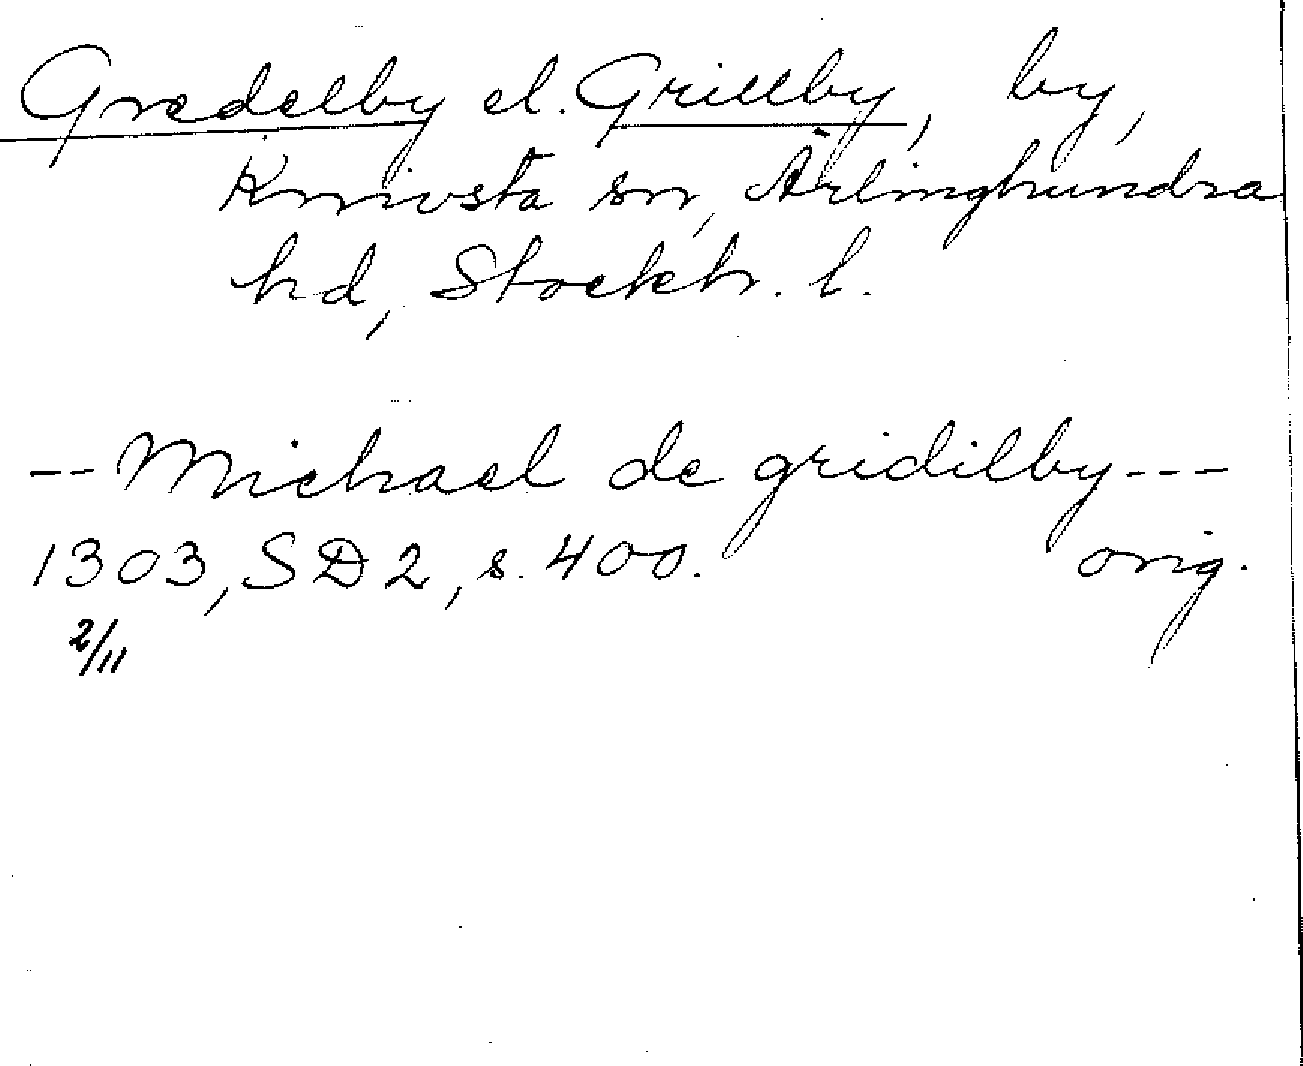 Gredelby el. Grillby, by,
Knivsta sn, Ärlinghundra
hd, Stockh. l.
-- Michael de gridilby ---
1303, SD 2, s. 400. orig.
2/11